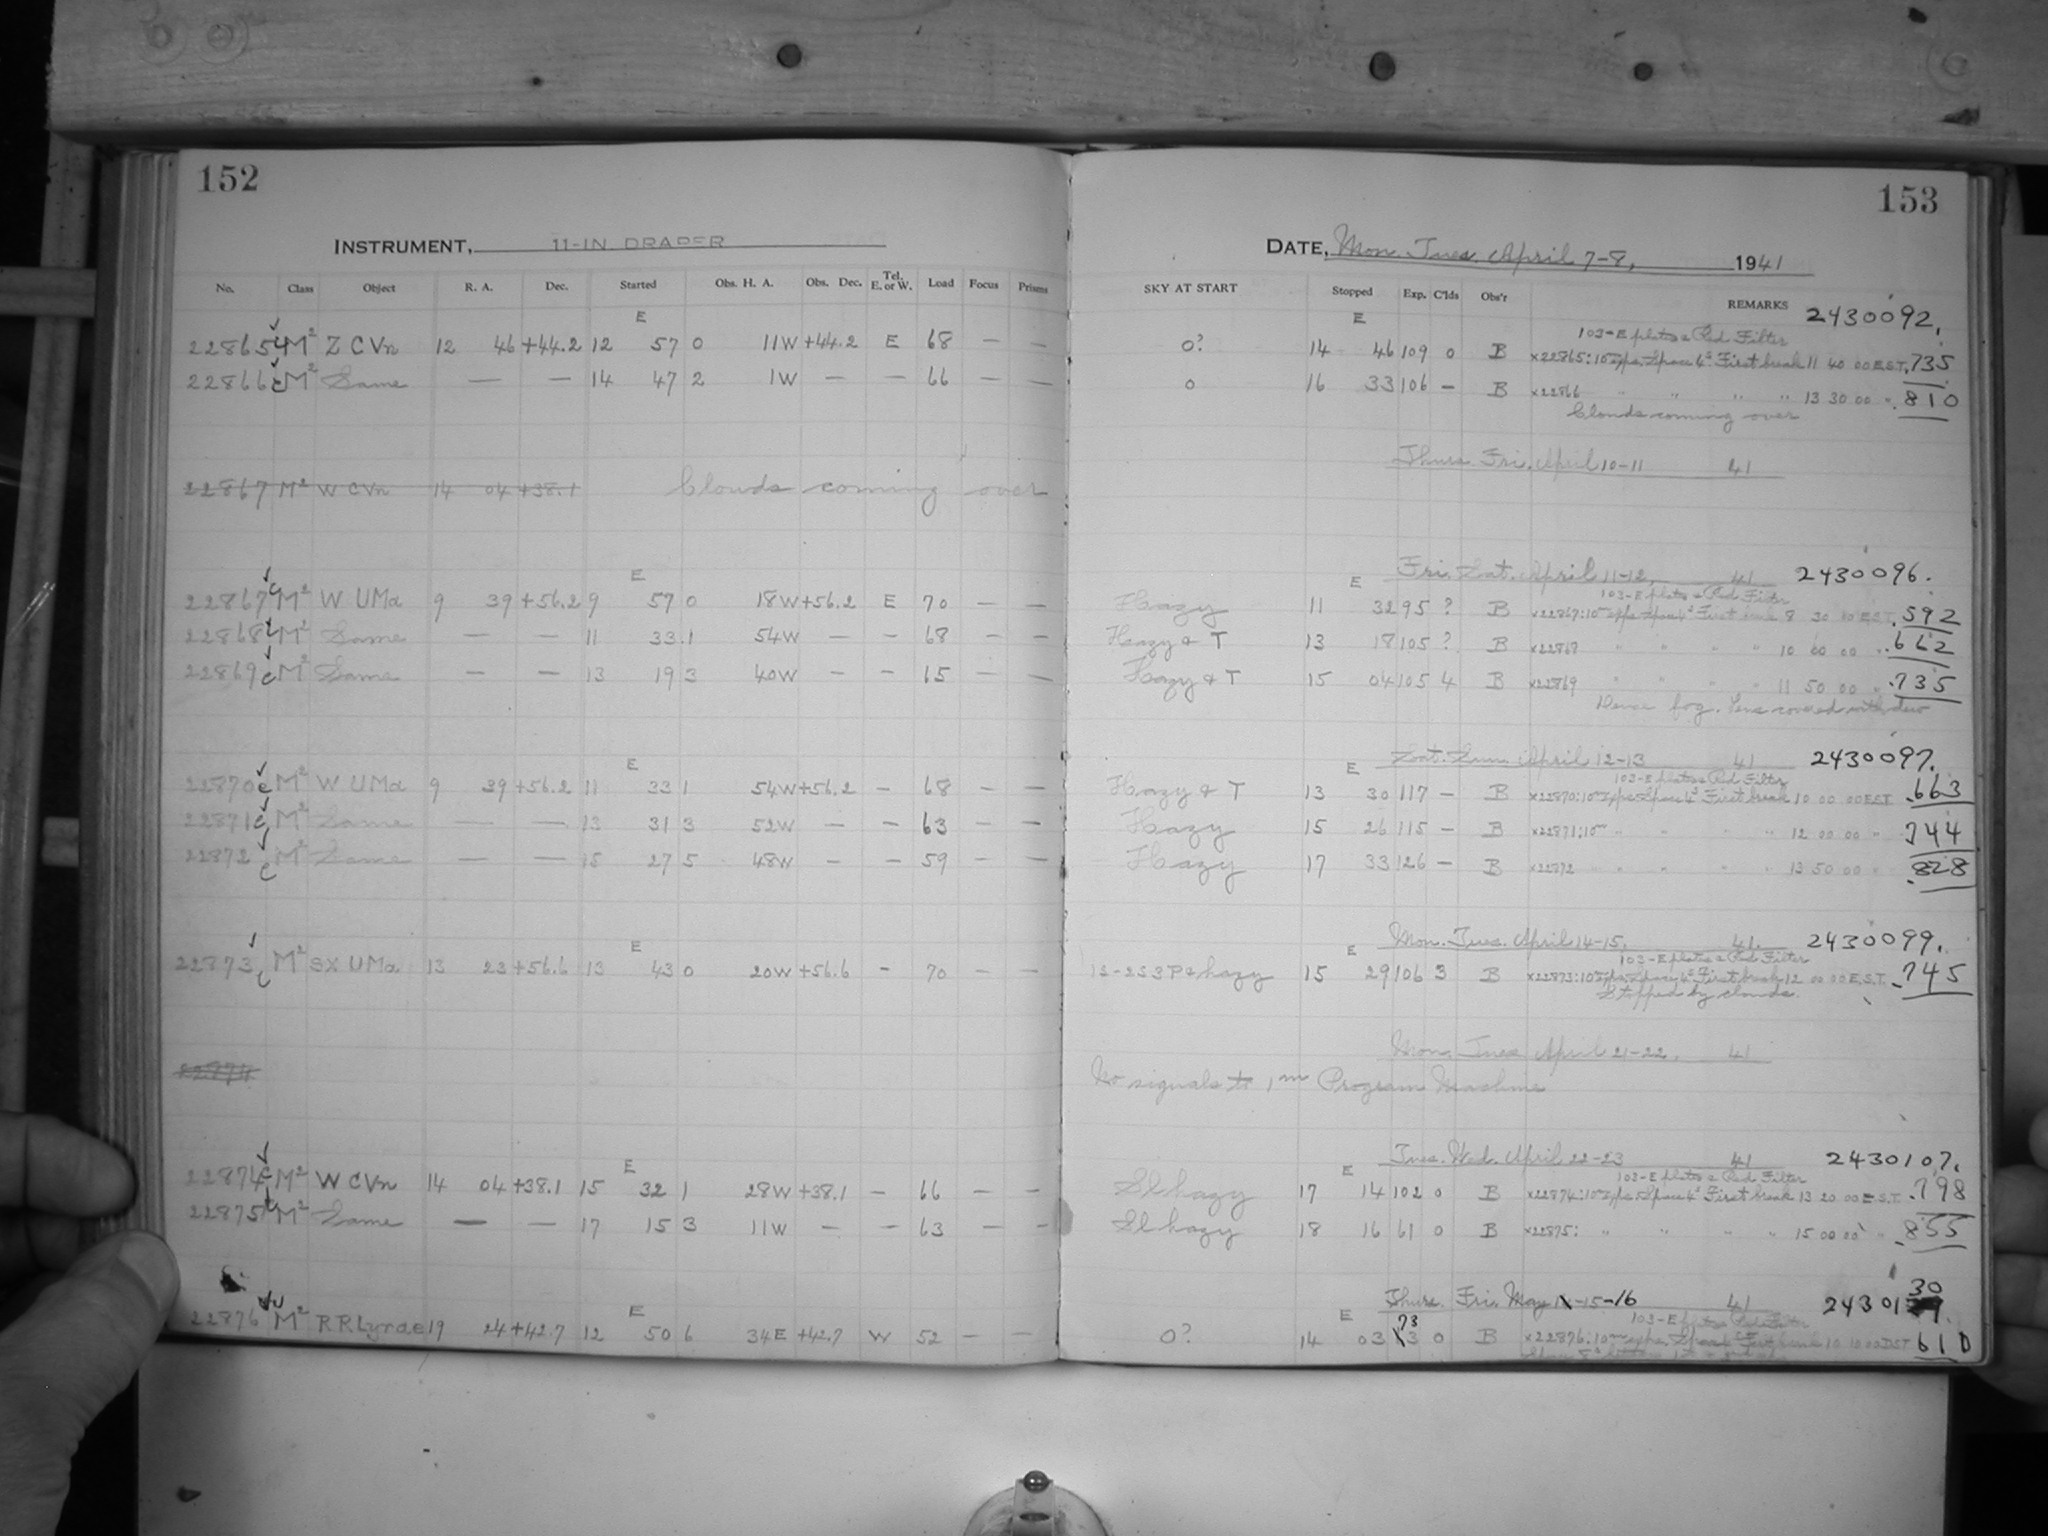 152
INSTRUMENT, 11-IN DRAPER
No. Class Object R. A. Dec. Started Obs. H. A. Obs. Dec. Tel. E. or W. Load Focus Prisms
E
22865 M² Z CVn 12 46 +44.2 12 57 0 11W +44.2 E 68 — —
22866 M² Same — — 14 47 2 1W — — 66 — —
22867 M² W CVn 14 04 +38.1 Clouds coming over
E
22867 M² W UMa 9 39 +56.2 9 57 0 18W +56.2 E 70 — —
22868 M² Same — — 11 33.1 54W — — 68 — —
22869 M² Same — — 13 19 3 40W — — 65 — —
E
22870 M² W UMa 9 39 +56.2 11 33 1 54W +56.2 — 68 — —
22871 M² Same — — 13 31 3 52W — — 63 — —
22872 M² Same — — 15 27 5 48W — — 59 — —
E
22873 M² SX UMa 13 23 +56.6 13 43 0 20W +56.6 - 70 — —
22874
E
22874 M² W CVn 14 04 +38.1 15 32 1 28W +38.1 - 66 — —
22875 M² Same — — 17 15 3 11W — — 63 — —
E
22876 M² RR Lyrae 19 24 +42.7 12 50 6 34E +42.7 W 52 — —
153
DATE, Mon. Tues. April 7-8, 1941
SKY AT START Stopped Exp. C'lds Obs'r REMARKS 2430092.
E 103-E plates & Red Filter
0? 14 46 109 0 B x22865: 10ᵐ exps. Space 4ˢ First break 11 40 00 E.S.T. .735
0 16 33 106 — B x22866 " " " " 13 30 00 " .810
Clouds coming over
Thurs. Fri. April 10-11 41
Fri. Sat. April 11-12, 41 2430096.
E 103-E plates & Red Filter
Hazy 11 32 95 ? B x22867: 10ᵐ exps. Space 4ˢ First break 8 30 00 E.S.T. .592
Hazy & T 13 18 105 ? B x22868 " " " " 10 00 00 " .662
Hazy & T 15 04 105 4 B x22869 " " " " 11 50 00 " .735
Dense fog. Lens covered with dew
Sat. Sun. April 12-13 41 2430097.
E 103-E plates & Red Filter
Hazy & T 13 30 117 — B x22870: 10ᵐ exps. Space 4ˢ First break 10 00 00 E.S.T. .663
Hazy 15 26 115 — B x22871: 10ᵐ " " " 12 00 00 " .744
Hazy 17 33 126 — B x22872 " " " " 13 50 00 " .828
Mon. Tues. April 14-15, 41. 2430099.
E 103-E plates & Red Filter
15 29 106 3 B x22873: 10ᵐ exps. Space 4ˢ First break 12 00 00 E.S.T. .745
Stopped by clouds.
Mon. Tues April 21-22, 41
No signals to 1ᵐ Program Machine
Tues. Wed. April 22-23 41 2430107.
E 103-E plates & Red Filter
Sl hazy 17 14 102 0 B x22874: 10ᵐ exps. Space 4ˢ First break 13 20 00 E.S.T. .798
Sl hazy 18 16 61 0 B x22875: " " " " 15 00 00 " .855
Thurs. Fri. May 15-16 41 2430130
E 103-E plates Red Filter
0? 14 03 73 0 B x22876: 10ᵐ exps. Space First break 10 10 00 DST 610